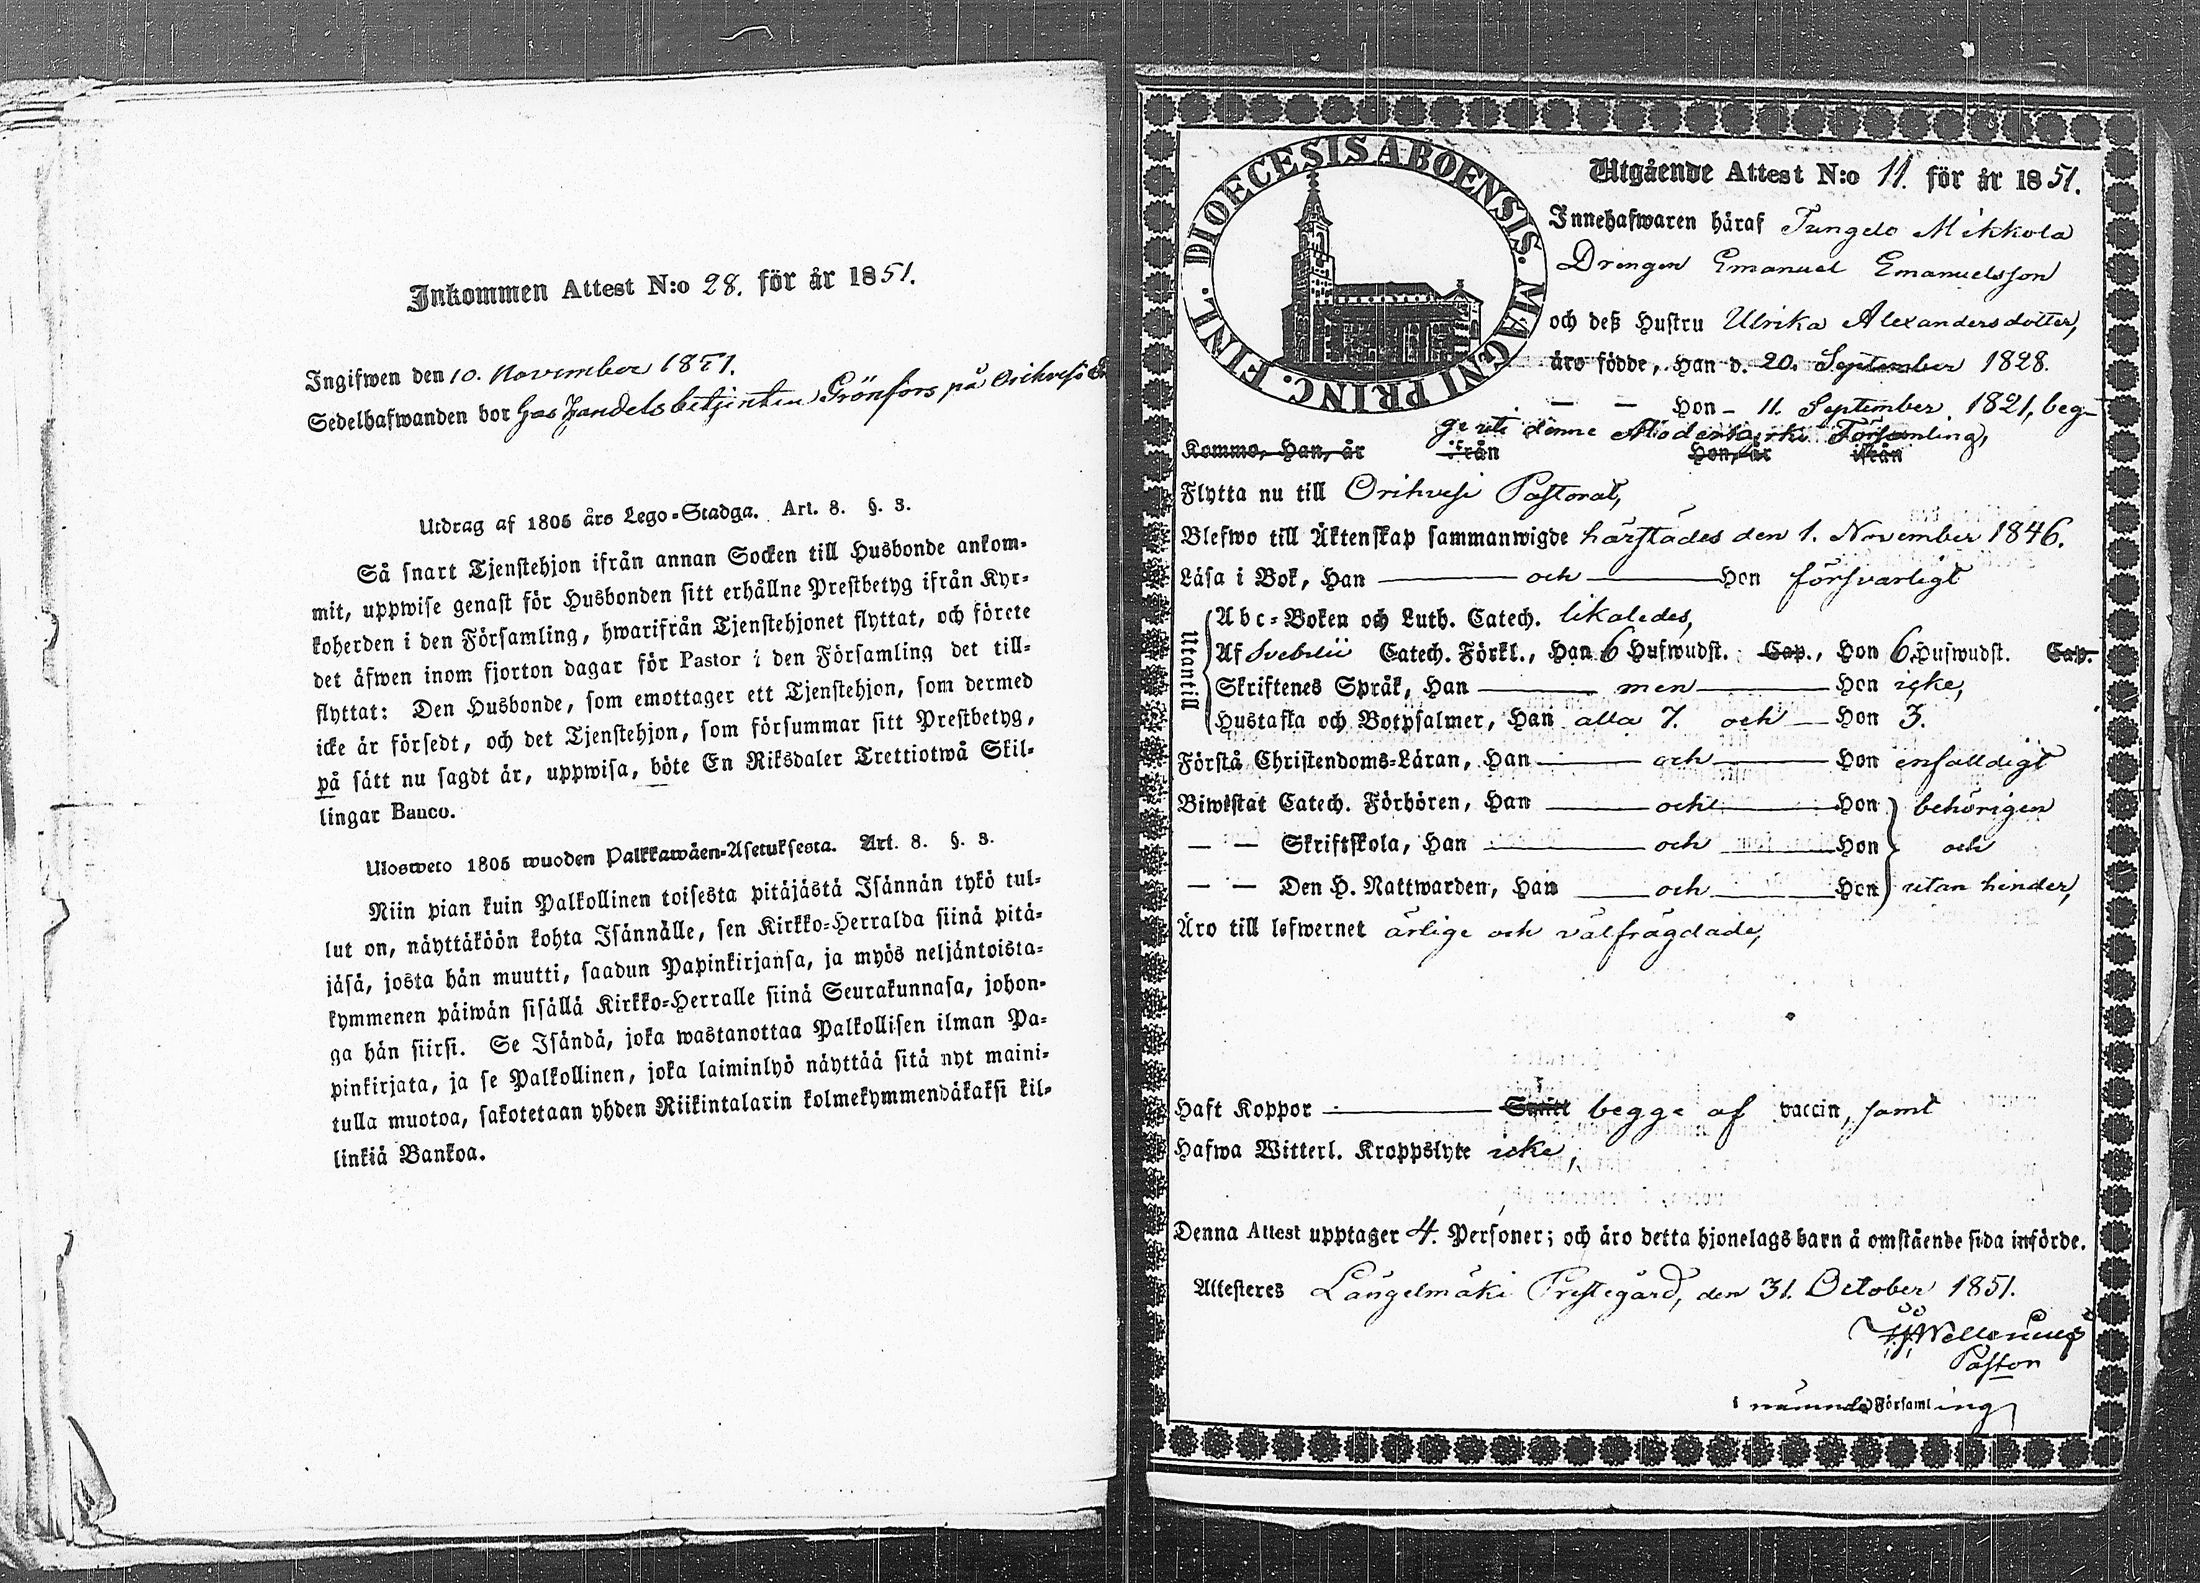 Inkommen Attest N:o 28. för år 1851.
Ingifwen den 10. November 1851.
Sedelhafwanden bor hos Handelsbetjenten Grönfors på Orihvesi
Utdrag af 1805 års Lego-Stadga. Art. 8. §. 3.
Så snart Tjenstehjon ifrån annan Socken till Husbonde ankom-
mit, uppwise genast för Husbonden sitt erhållne Prestbetyg ifrån Kyr-
koherden i den Församling, hwarifrån Tjenstehjonet flyttat, och förete
det äfwen inom fjorton dagar för Pastor i den Församling det till-
flyttat: Den Husbonde, som emottager ett Tjenstehjon, som dermed
icke är försedt, och det Tjenstehjon, som försummar sitt Prestbetyg,
på sätt nu sagdt är, uppwisa, böte En Riksdaler Trettiotwå Skil-
lingar Banco.
Ulosweto 1805 wuoden Palkkawäen-Asetuksesta. Art. 8. §. 3.
Niin pian kuin Palkollinen toisesta pitäjästä Isännän tykö tul-
lut on, näyttäköön kohta Isännälle, sen Kirkko-Herralda siinä pitä-
jäsä, josta hän muutti, saadun Papinkirjansa, ja myös neljäntoista-
kymmenen päiwän sisällä Kirkko-Herralle siinä Seurakunnasa, johon-
ga hän siirsi. Se Isändä, joka wastanottaa Palkollisen ilman Pa-
pinkirjata, ja se Palkollinen, joka laiminlyö näyttää sitä nyt maini-
tulla muotoa, sakotetaan yhden Riikintalarin kolmekymmendäkaksi kil-
linkiä Bankoa.
DIOECESIS ABOENSIS. MAGNI PRINC. FINL.
Utgående Attest N:o 11. för år 1851.
Innehafwaren häraf Tungelo Mikkola
Drengen Emanuel Emanuelsson
och deß Hustru Ulrika Alexandersdotter,
äro födde, Han d. 20. September 1828.
— — Hon - 11. September 1821, beg-
ge uti denne Moderkyrko Församling,
Komme, Han, är ifrån Hon, är ifrån
Flytta nu till Orihvesi Pastorat,
Blefwo till Äktenskap sammanwigde härstädes den 1. November 1846.
Läsa i Bok, Han — och — Hon försvarligt
Utantill
Abc-Boken och Luth. Catech. likaledes,
Af Svebilii Catech. Förkl., Han 6 Hufwudst. Cap., Hon 6 Hufwudst. Cap.
Skriftenes Språk, Han — men — Hon icke,
Hustafla och Botpsalmer, Han alla 7. och — Hon 3.
Förstå Christendoms-Läran, Han — och — Hon enfalldigt
Biwistat Catech. Förhören, Han — och — Hon behörigen
— — Skriftskola, Han — och — Hon och
— — Den H. Nattwarden, Han — och — Hon utan hinder,
Äro till lefwernet ärlige och välfrägdade,
Haft Koppor — Smitt begge af vaccin, samt
Hafwa Witterl. Kroppslyte icke,
Denna Attest upptager 4. Personer; och äro detta hjonelags barn å omstående sida införde.
Attesteres Längelmäki Prestegård, den 31. October 1851.
Pastor
i nämnde Församling